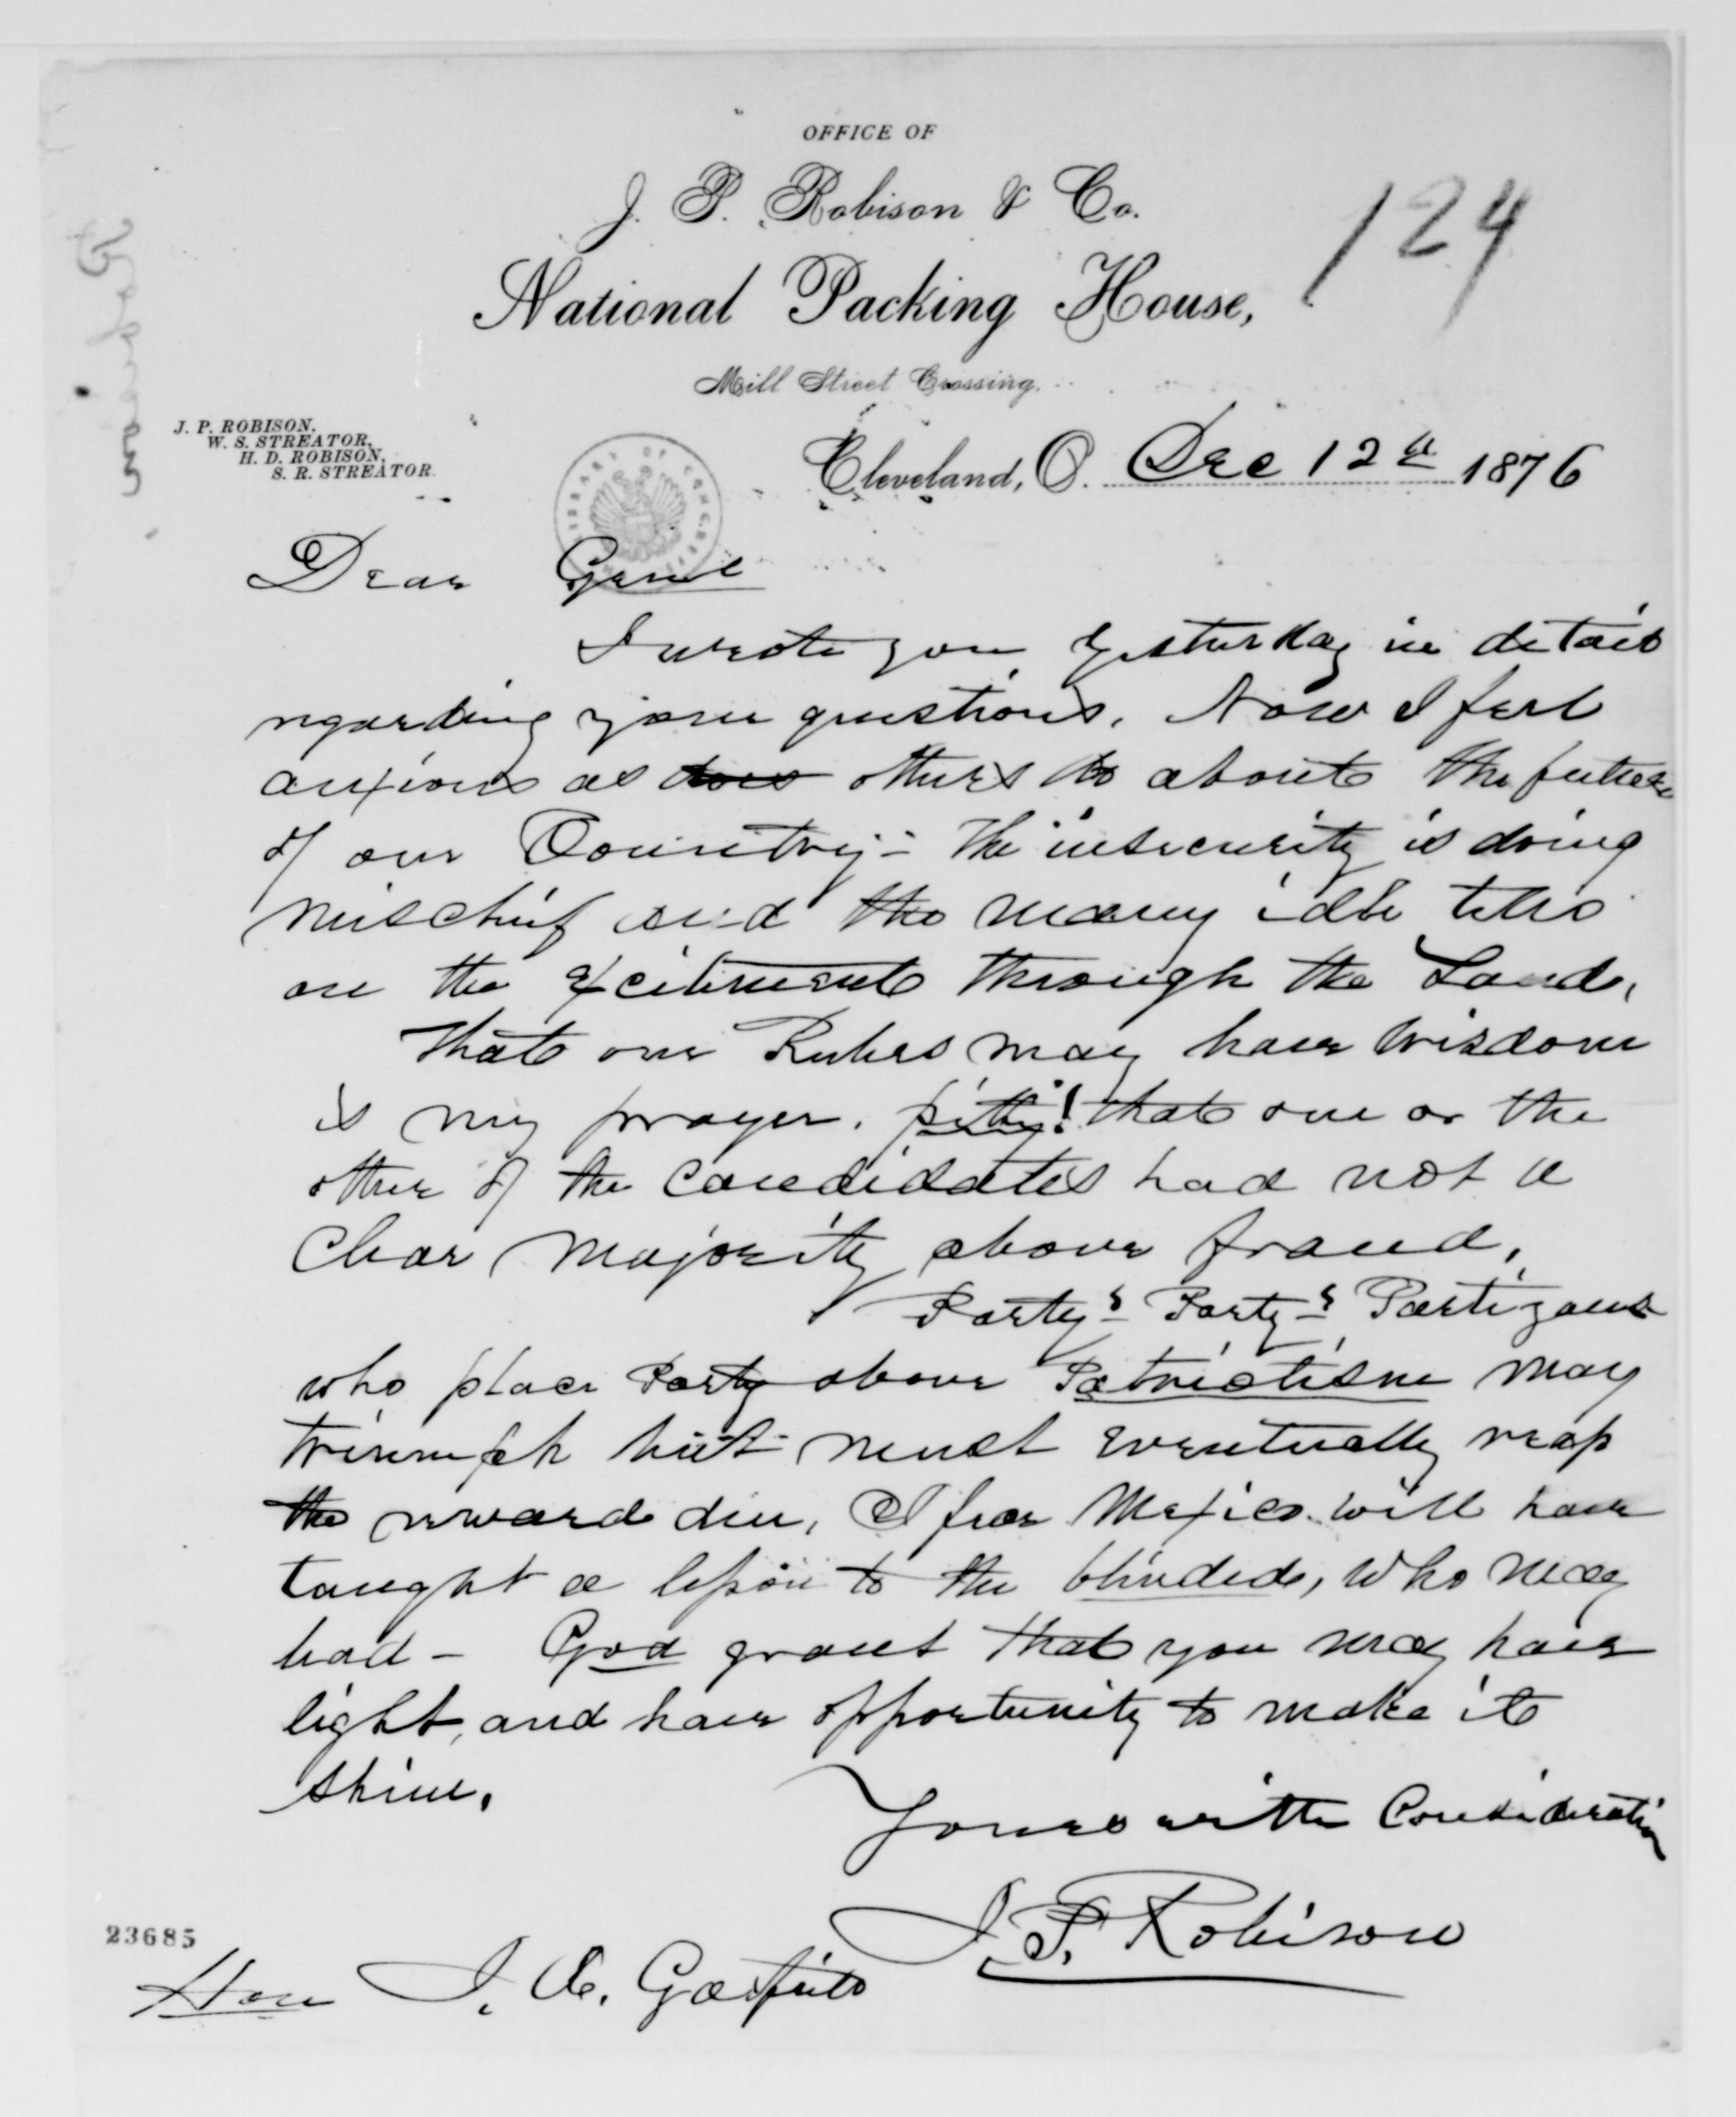 OFFICE OF
J. P. Robison & Co.
124
National Packing House,
Mill Street Crossing.
J. P. ROBISON.
W. S. STREATOR,
H. D. ROBISON,
S. R. STREATOR.
LIBRARY OF CONGRESS
Cleveland, O. Dec 12th 1876
Dear Genl
I wrote you yesturday in detail
regarding your questions. Now I feel
anxious as does others do about the future
of our Country - The insecurity is doing
mischief and the many idle tells
on the excitement through the Land.
That our Rulers may have wisdom
is my prayer. pity! that one or the
other of the candidates had not a
clear majority above fraud.
Party - Party - Partizans
who place Party above Patriotism may
triumph but must eventually reap
the reward due. I fear Mexico will have
taught a lesson to the blinded, who may
lead - God grant that you may have
light, and have opportunity to make it
shine.
Yours with Consideration
J. P. Robison
23685
Hon J. A. Garfield